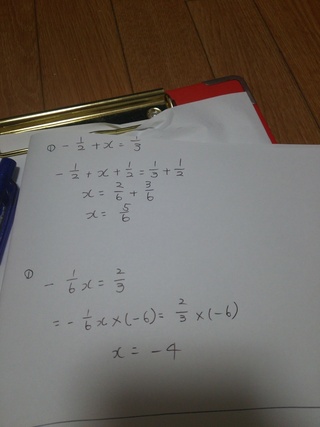 ① -1/2 + x = 1/3
-1/2 + x + 1/2 = 1/3 + 1/2
x = 2/6 + 3/6
x = 5/6
① -1/6 x = 2/3
= -1/6 x × (-6) = 2/3 × (-6)
x = -4